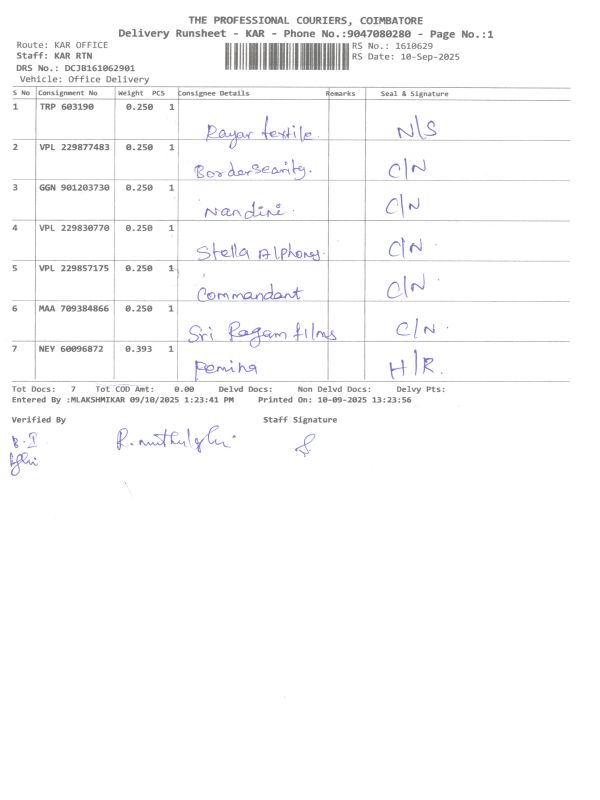 THE PROFESSIONAL COURIERS, COIMBATORE
Delivery Runsheet - KAR - Phone No.:9047080280 - Page No.:1
Route: KAR OFFICE RS No.: 1610629
Staff: KAR RTN RS Date: 10-Sep-2025
DRS No.: DCJB161062901
Vehicle: Office Delivery
S No Consignment No Weight PCS Consignee Details Remarks Seal & Signature
1 TRP 603190 0.250 1
Rayar textile. N/S
2 VPL 229877483 0.250 1
C/N
3 GGN 901203730 0.250 1
Nandini. C/N
4 VPL 229830770 0.250 1
Stella Alphons. C/N
5 VPL 229857175 0.250 1
Commandant C/N
6 MAA 709384866 0.250 1
Sri Ragam films C/N
7 NEY 60096872 0.393 1
Femina H/R.
Tot Docs: 7 Tot COD Amt: 0.00 Delvd Docs: Non Delvd Docs: Delvy Pts:
Entered By :MLAKSHMIKAR 09/10/2025 1:23:41 PM Printed On: 10-09-2025 13:23:56
Verified By Staff Signature